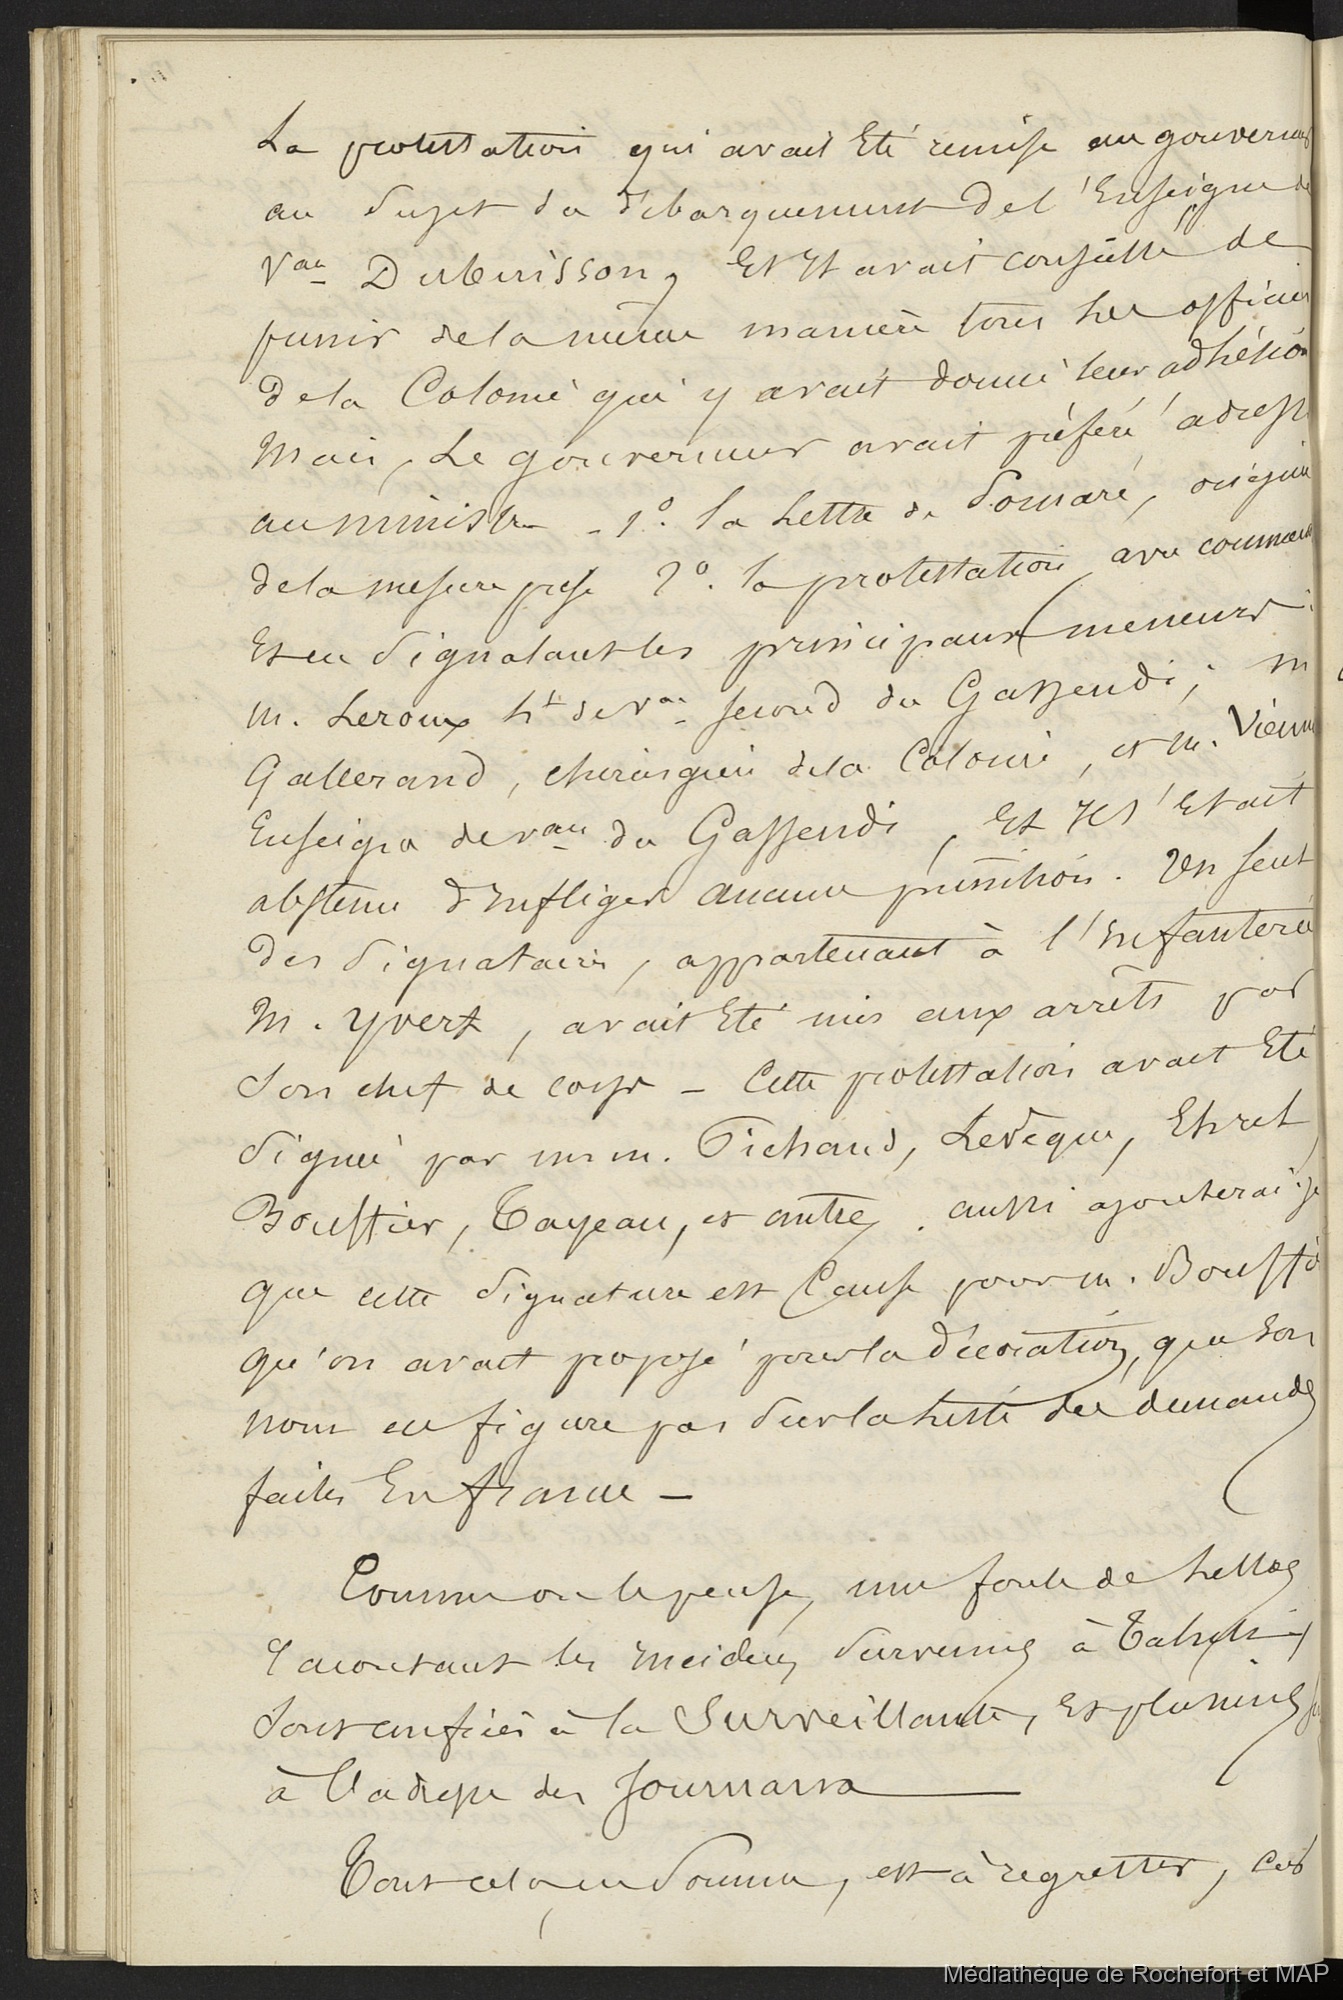 La protestation qui avait été remise au gouverneur
au sujet du débarquement de l'Enseigne de
Vau Dubuisson, Et Il avait conseillé de
punir de la même manière tous les officiers
de la Colonie qui y avait donné leur adhésion
Mais, Le gouverneur avait préféré adresser
au ministre - 1º. la lettre de Pomaré, origine
de la mesure prise 2º. la protestation, avec
Et en signalant les principaux meneurs :
M. Leroux Lt de Vau second du Gassendi ; M
Gallerand, chirurgien de la Colonie, et M.
Enseigne de Vau du Gassendi, Et s'était
abstenu d'Infliger aucune punition. Un seul
des signataires, appartenant à l'Infanterie
M. Yvert, avait Eté mis aux arrêts par
Son chef de corps - Cette protestation avait Eté
signée par mm. Pichaud, Levèque, Ehret,
Bouffier, Tayeau, et autres. aussi ajouterai-je
que cette signature est Cause pour M.
qu'on avait proposé pour la décoration, que son
nom ne figure pas sur la liste des demandes
faites En france -
Comme on le pense, une foule de lettres
racontant les incidens survenus à Tahiti,
Sont confiées à la Surveillante, Et plusieurs
à l'adresse des Journaux
Tout cela, en Somme, est à regretter, car
Médiathèque de Rochefort et MAP